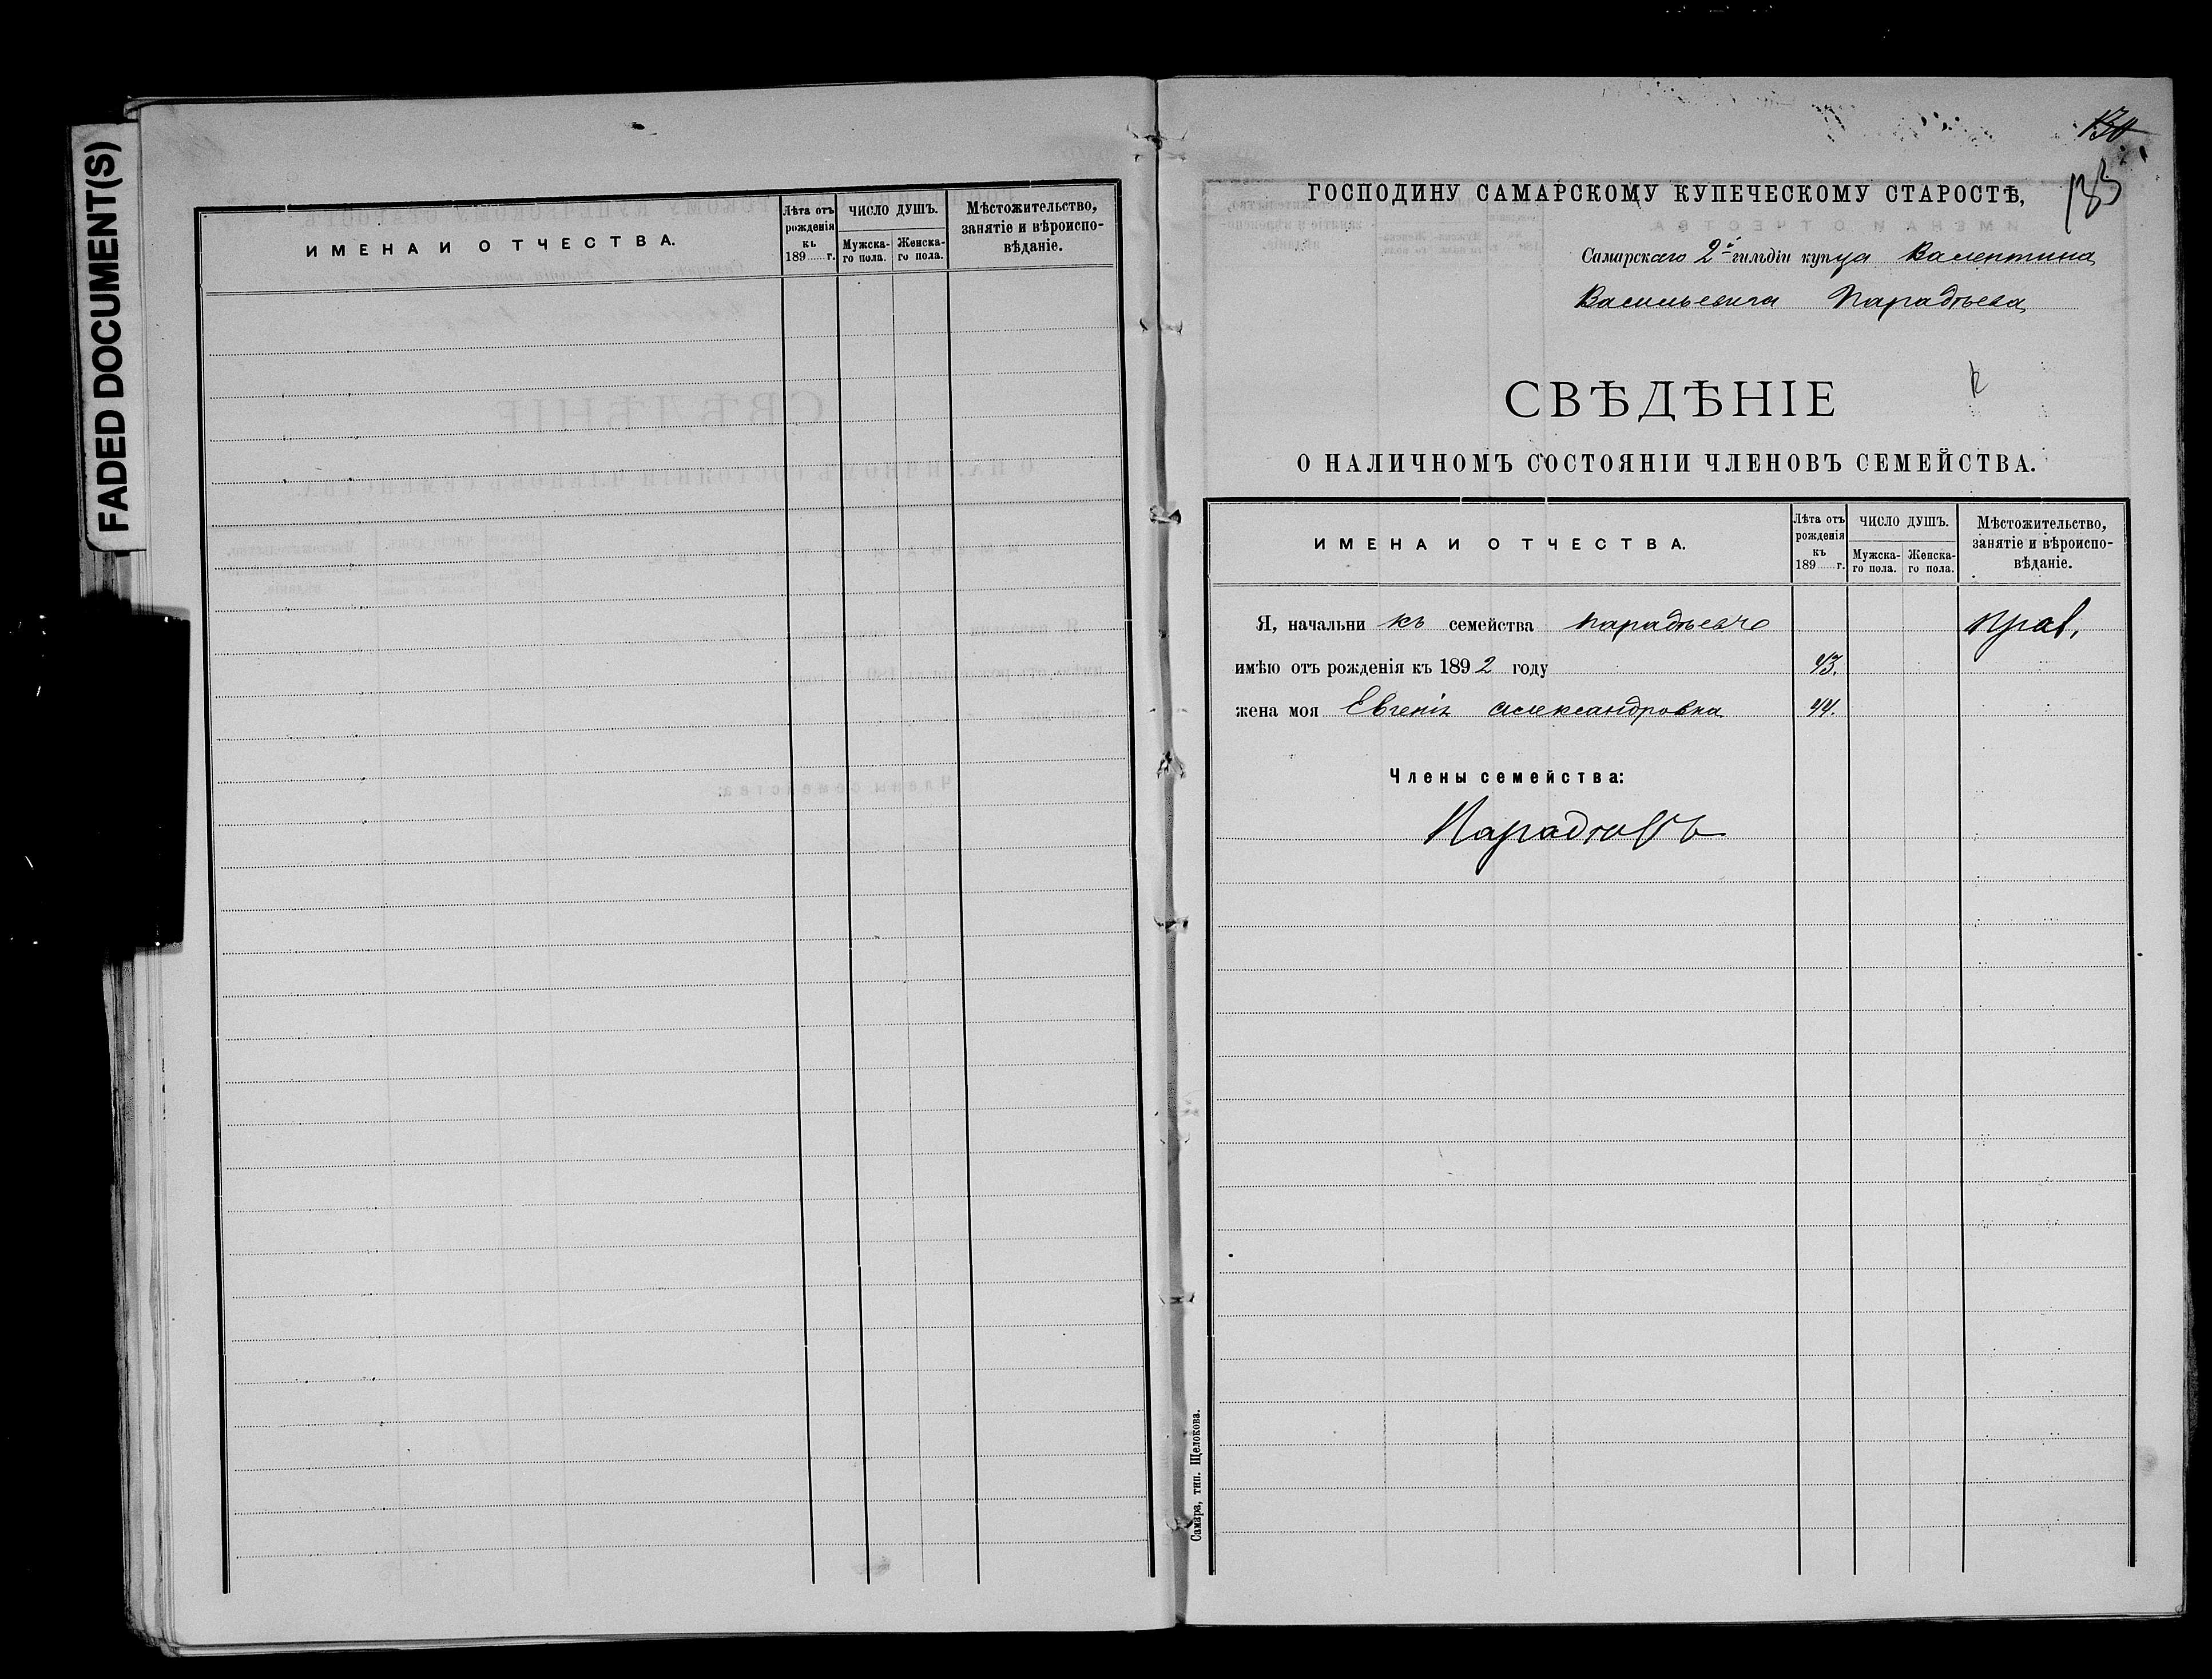 FADED DOCUMENT(S)
ИМЕНА И ОТЧЕСТВА.
Лѣта отъ рожденія къ 189 г.
ЧИСЛО ДУШЪ.
Мужска-го пола.
Женска-го пола.
Мѣстожительство, занятіе и вѣроиспо-вѣданіе.
130
ГОСПОДИНУ САМАРСКОМУ КУПЕЧЕСКОМУ СТАРОСТѢ,
Самарскаго 2й гильдіи купца Валентина
Васильевича Парадѣева
СВѢДѢНІЕ
О НАЛИЧНОМЪ СОСТОЯНІИ ЧЛЕНОВЪ СЕМЕЙСТВА.
ИМЕНА И ОТЧЕСТВА.
Лѣта отъ рожденія къ 189 г.
ЧИСЛО ДУШЪ.
Мужска-го пола.
Женска-го пола.
Мѣстожительство, занятіе и вѣроиспо-вѣданіе.
Я, начальни къ семейства Прав.
имѣю отъ рожденія къ 1892 году 43.
жена моя Евгенія Александровна 44.
Члены семейства:
Самара, тип. Щелокова.